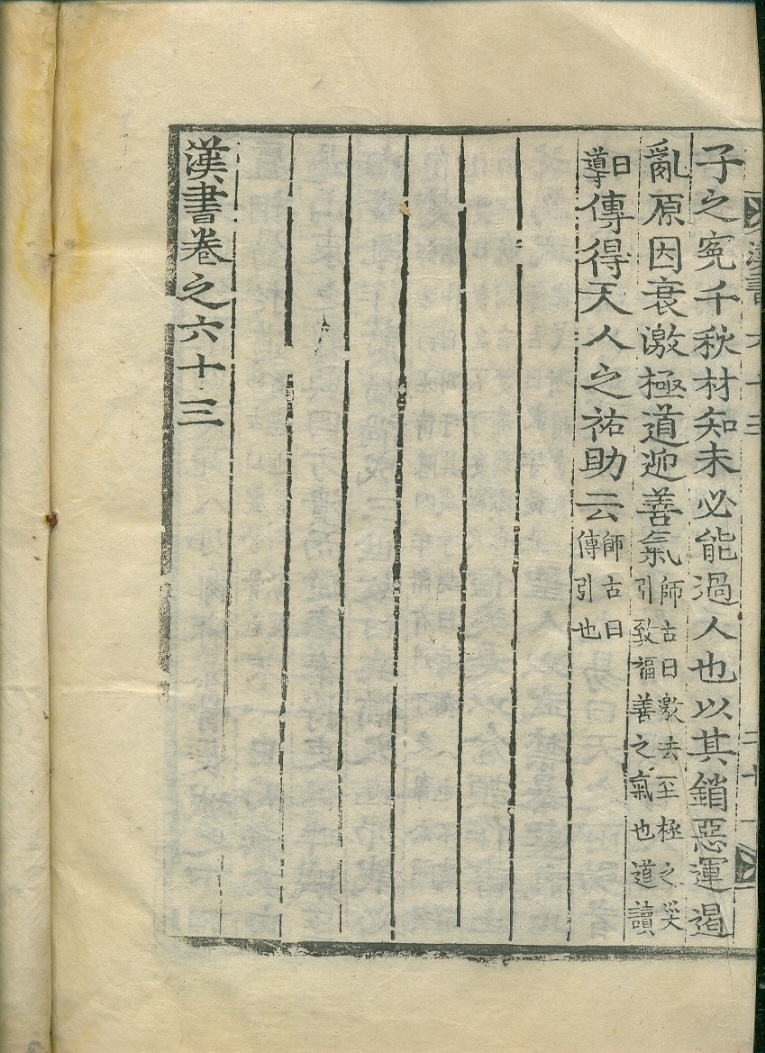 漢書六十三 二十一
子之寃千秋材知未必能過人也以其銷惡運遏
亂原因衰激極道迎善氣師古曰激去至極之災引致福善之氣也道讀
曰導傳得天人之祐助云師古曰傳引也
漢書卷之六十三